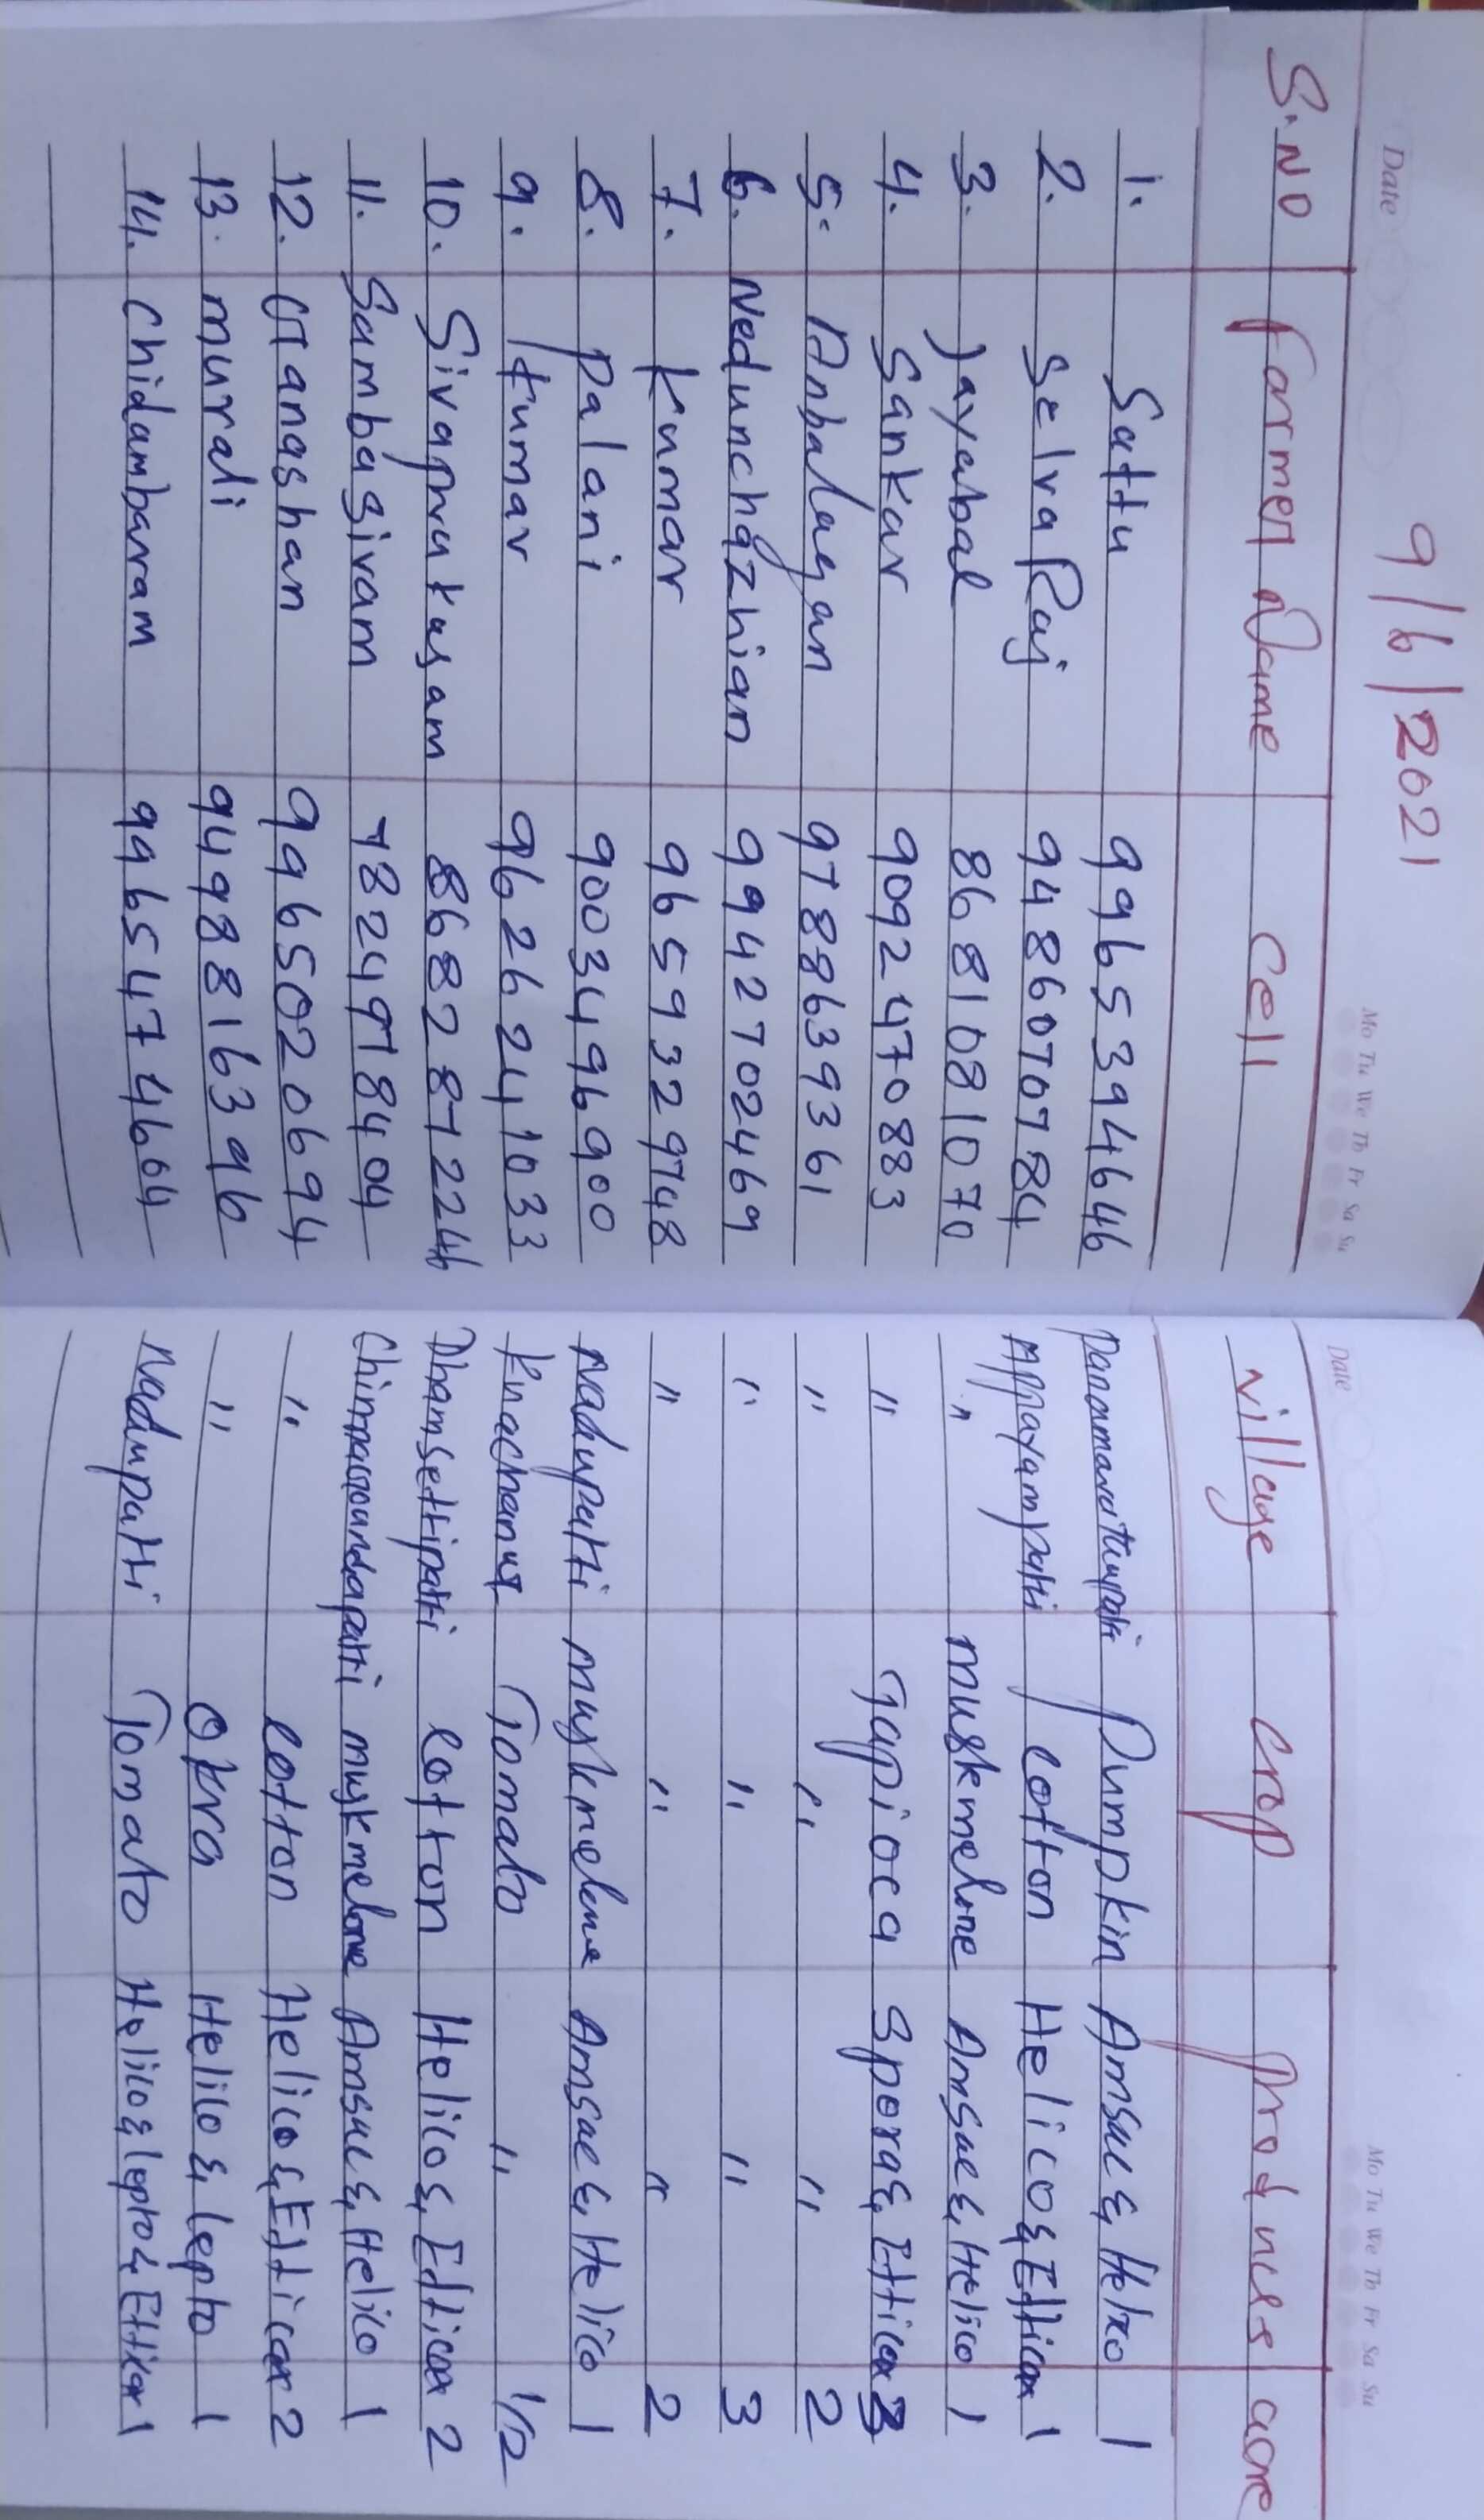 Date 9/6/2021 Mo Tu We Th Fr Sa Su
Date Mo Tu We Th Fr Sa Su
S.No Farmer Name Cell village crop produces acre
1. Sattu 9965394646 Pumpkin Amsac & Helico 1
2. Selva Raj 9486070784 Appayampatti Cotton Helico & Ethicon 1
3. Jayabal 8681081070 " muskmelone Amsac & Helico 1
4. Sankar 9092470883 " Tapioca Sporas, Ethicon 3
5. Anbalagan 9788639361 " " " 2
6. Nedunchazhian 9942702469 " " " 3
7. Kumar 9659329748 " " " 2
8. Palani 9003496900 Nadupatti muskmelone Amsac & Helico 1
9. Kumar 9626241033 Tomato " 1/2
10. Sivaprukasam 8682872246 Dhamsettipatti Cotton Helico & Ethicon 2
11. Sambasivam 7824978404 muskmelone Amsac & Helico 1
12. Ganashan 9965020694 " cotton Helico & Ethicon 2
13. murali 9498816396 " Okra Helico & lepto 1
14. Chidambaram 9965474604 Nadupatti Tomato Helico & lepto & Ethicon 1